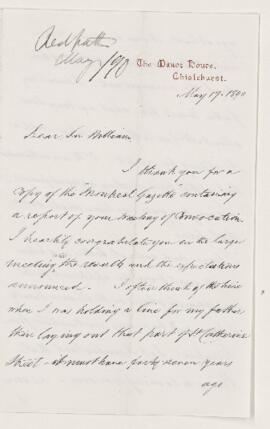 Redpath
May 1/90
The Manor House,
Chislehurst.
May 17. 1890
Dear Sir William,
I thank you for a
copy of the "Montreal Gazette" containing
a report of your meeting of Convocation.
I heartily congratulate you on the large
meeting, the results and the
announced. I often think of the time
when I was holding a line for my father
then laying out that part of St Catherine
Street - it must have forty seven years
ago